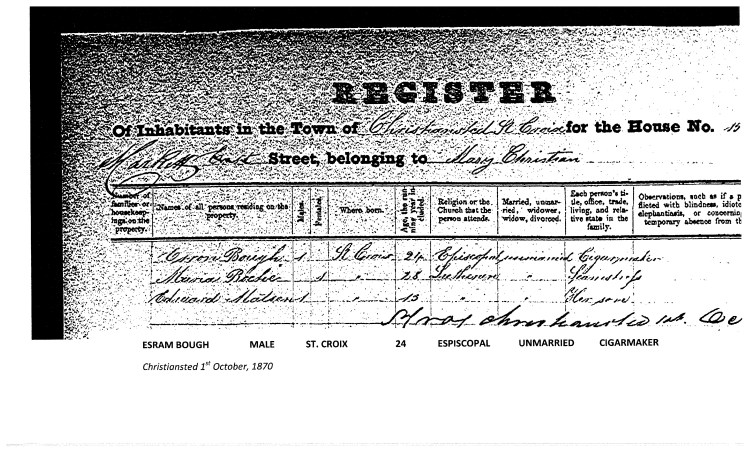 REGISTER
Of Inhabitants in the Town of Christiansted St Croix for the House No. 15
Street, belonging to Mary Christian
Number of families or housekeepings on the property. Names of all persons residing on the property. Males. Females. Where born. Age, the running year included. Religion or the Church that the person attends. Married, unmarried, widower, widow, divorced. Each person's title, office, trade, living, and relative state in the family. Observations, such as if a p flicted with blindness, idiote elephantiasis, or concernin temporary absence from th
Bough 1 St Croix 24 Episcopal unmarried Cigarmaker
Maria 1 " 28 Lutheran " Seamstress
Edward 1 " 13 " " Her son
Christiansted 1st Oc
ESRAM BOUGH MALE ST. CROIX 24 ESPISCOPAL UNMARRIED CIGARMAKER
Christiansted 1st October, 1870